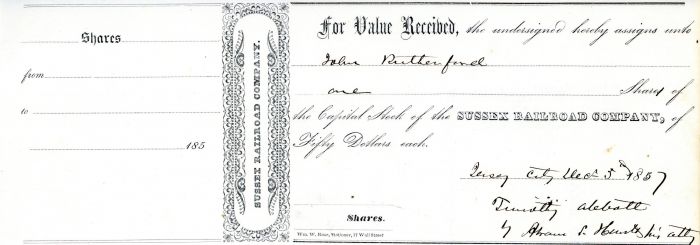 Shares
from
to
185
SUSSEX RAILROAD COMPANY.
For Value Received, the undersigned hereby assigns unto
John Rutherford
one Shares of
the Capital Stock of the SUSSEX RAILROAD COMPANY, of
Fifty Dollars each.
Jersey City Dec 5th 1857
Timothy Abbott
by Abram S. Hewitt his atty
Shares.
Wm. W. Rose, Stationer, 17 Wall Street